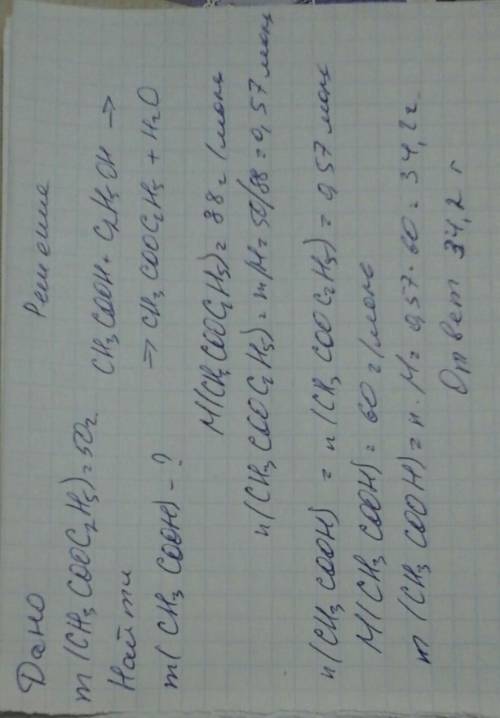 Дано
m(CH₃COOC₂H₅)=50г
Найти
m(CH₃COOH)-?
Решение
CH₃COOH + C₂H₅OH →
→ CH₃COOC₂H₅ + H₂O
M(CH₃COOC₂H₅)= 88 г/моль
n(CH₃COOC₂H₅)= m/M = 50/88 = 0,57 моль
n(CH₃COOH) = n(CH₃COOC₂H₅) = 0,57 моль
M(CH₃COOH) = 60 г/моль
m(CH₃COOH) = n · M = 0,57 · 60 = 34,2 г
Ответ 34,2 г